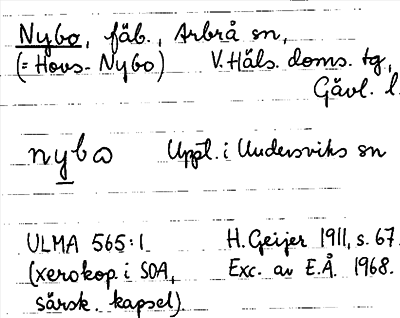 Nybo, fäb., Arbrå sn,
(= Hovs- Nybo) V. Häls. doms. tg,
Gävl. l.
nybω Uppl. i Undersviks sn
ULMA 565:1. H. Geijer 1911, s. 67.
(xerokop. i SOA, Exc. av E.Å. 1968.
särsk. kapsel).